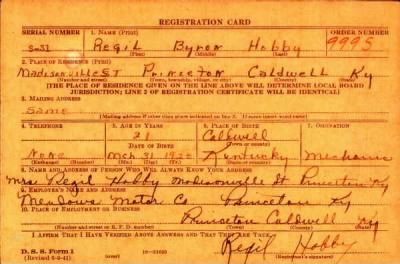 REGISTRATION CARD
SERIAL NUMBER 1. NAME (Print) ORDER NUMBER
S-31 Regil Byron Hobby 9995
(First) (Middle) (Last)
2. PLACE OF RESIDENCE (Print)
Madisonville ST Princeton Caldwell Ky
(Number and street) (Town, township, village, or city) (County) (State)
(THE PLACE OF RESIDENCE GIVEN ON THE LINE ABOVE WILL DETERMINE LOCAL BOARD
JURISDICTION; LINE 2 OF REGISTRATION CERTIFICATE WILL BE IDENTICAL)
3. MAILING ADDRESS
Same
(Mailing address if other than place indicated on line 2. If same insert word same)
4. TELEPHONE 5. AGE IN YEARS 6. PLACE OF BIRTH 7. OCCUPATION
21 Caldwell
DATE OF BIRTH
None Mch 31 1920 Kentucky Mechanic
(Exchange) (Number) (Mo.) (Day) (Yr.) (State or country)
8. NAME AND ADDRESS OF PERSON WHO WILL ALWAYS KNOW YOUR ADDRESS
Mrs Regil Hobby Madisonville St Princeton Ky
9. EMPLOYER'S NAME AND ADDRESS
Meadows Motor Co Princeton Ky
10. PLACE OF EMPLOYMENT OR BUSINESS
Princeton Caldwell Ky
(Number and street or R. F. D. number) (Town) (County) (State)
I AFFIRM THAT I HAVE VERIFIED ABOVE ANSWERS AND THAT THEY ARE TRUE.
D. S. S. Form 1
(Revised 6-9-41) (over) Regil Hobby